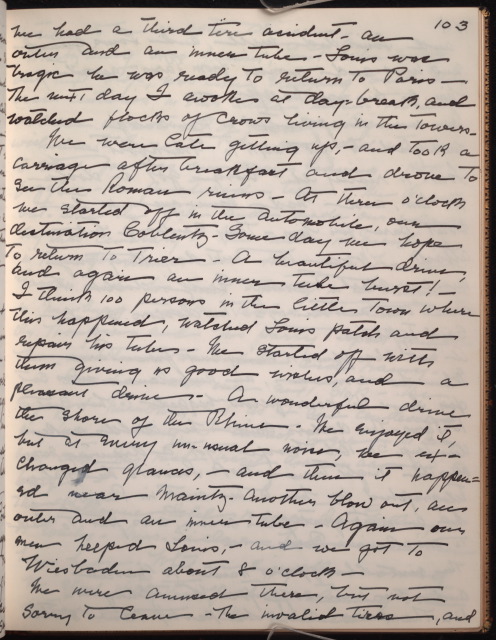 103
we had a third tire accident - an
outer and an inner tube - Louis was
tragic he was ready to return to Paris -
The next day I awoke at day-break, and
watched flocks of crows living in the towers -
We were late getting up, - and took a
carriage after breakfast and drove to
see the Roman ruins - At three o'clock
we started off in the automobile, our
destination Coblentz - Some day we hope
to return to Trier - A beautiful drive,
and again an inner tube burst! -
I think 100 persons in the little town where
this happened, watched Louis patch and
repair his tubes - We started off with
them giving us good wishes, and a
pleasant drive - A wonderful drive
the shore of the Rhine - We enjoyed it,
but at every un-usual noise, we ex-
changed glances, - and then it happen=
ed near Maintz - another blow out, an
outer and an inner tube - Again our
men helped Louis, - and we got to
Wiesbaden about 8 o'clock -
We were amused there, but not
sorry to leave - The invalid tires, and